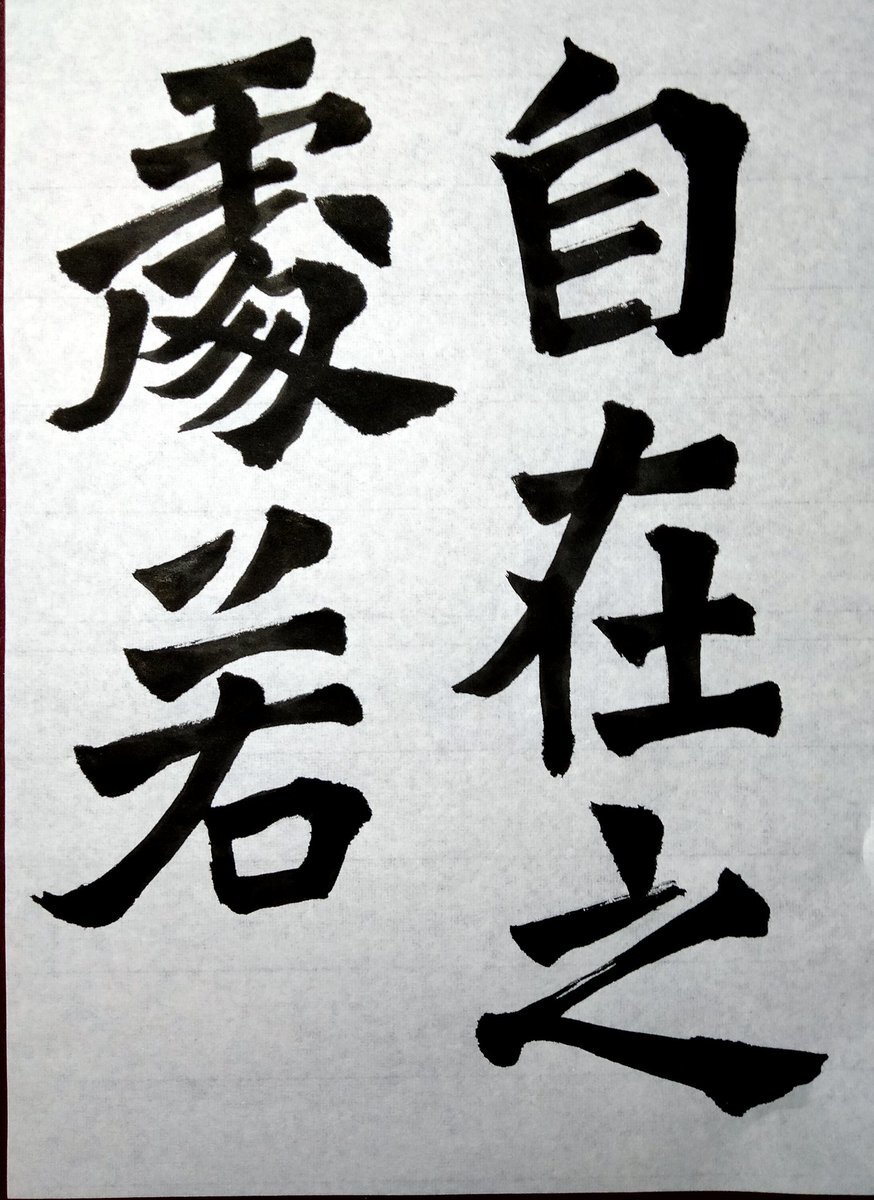 自在之
處若